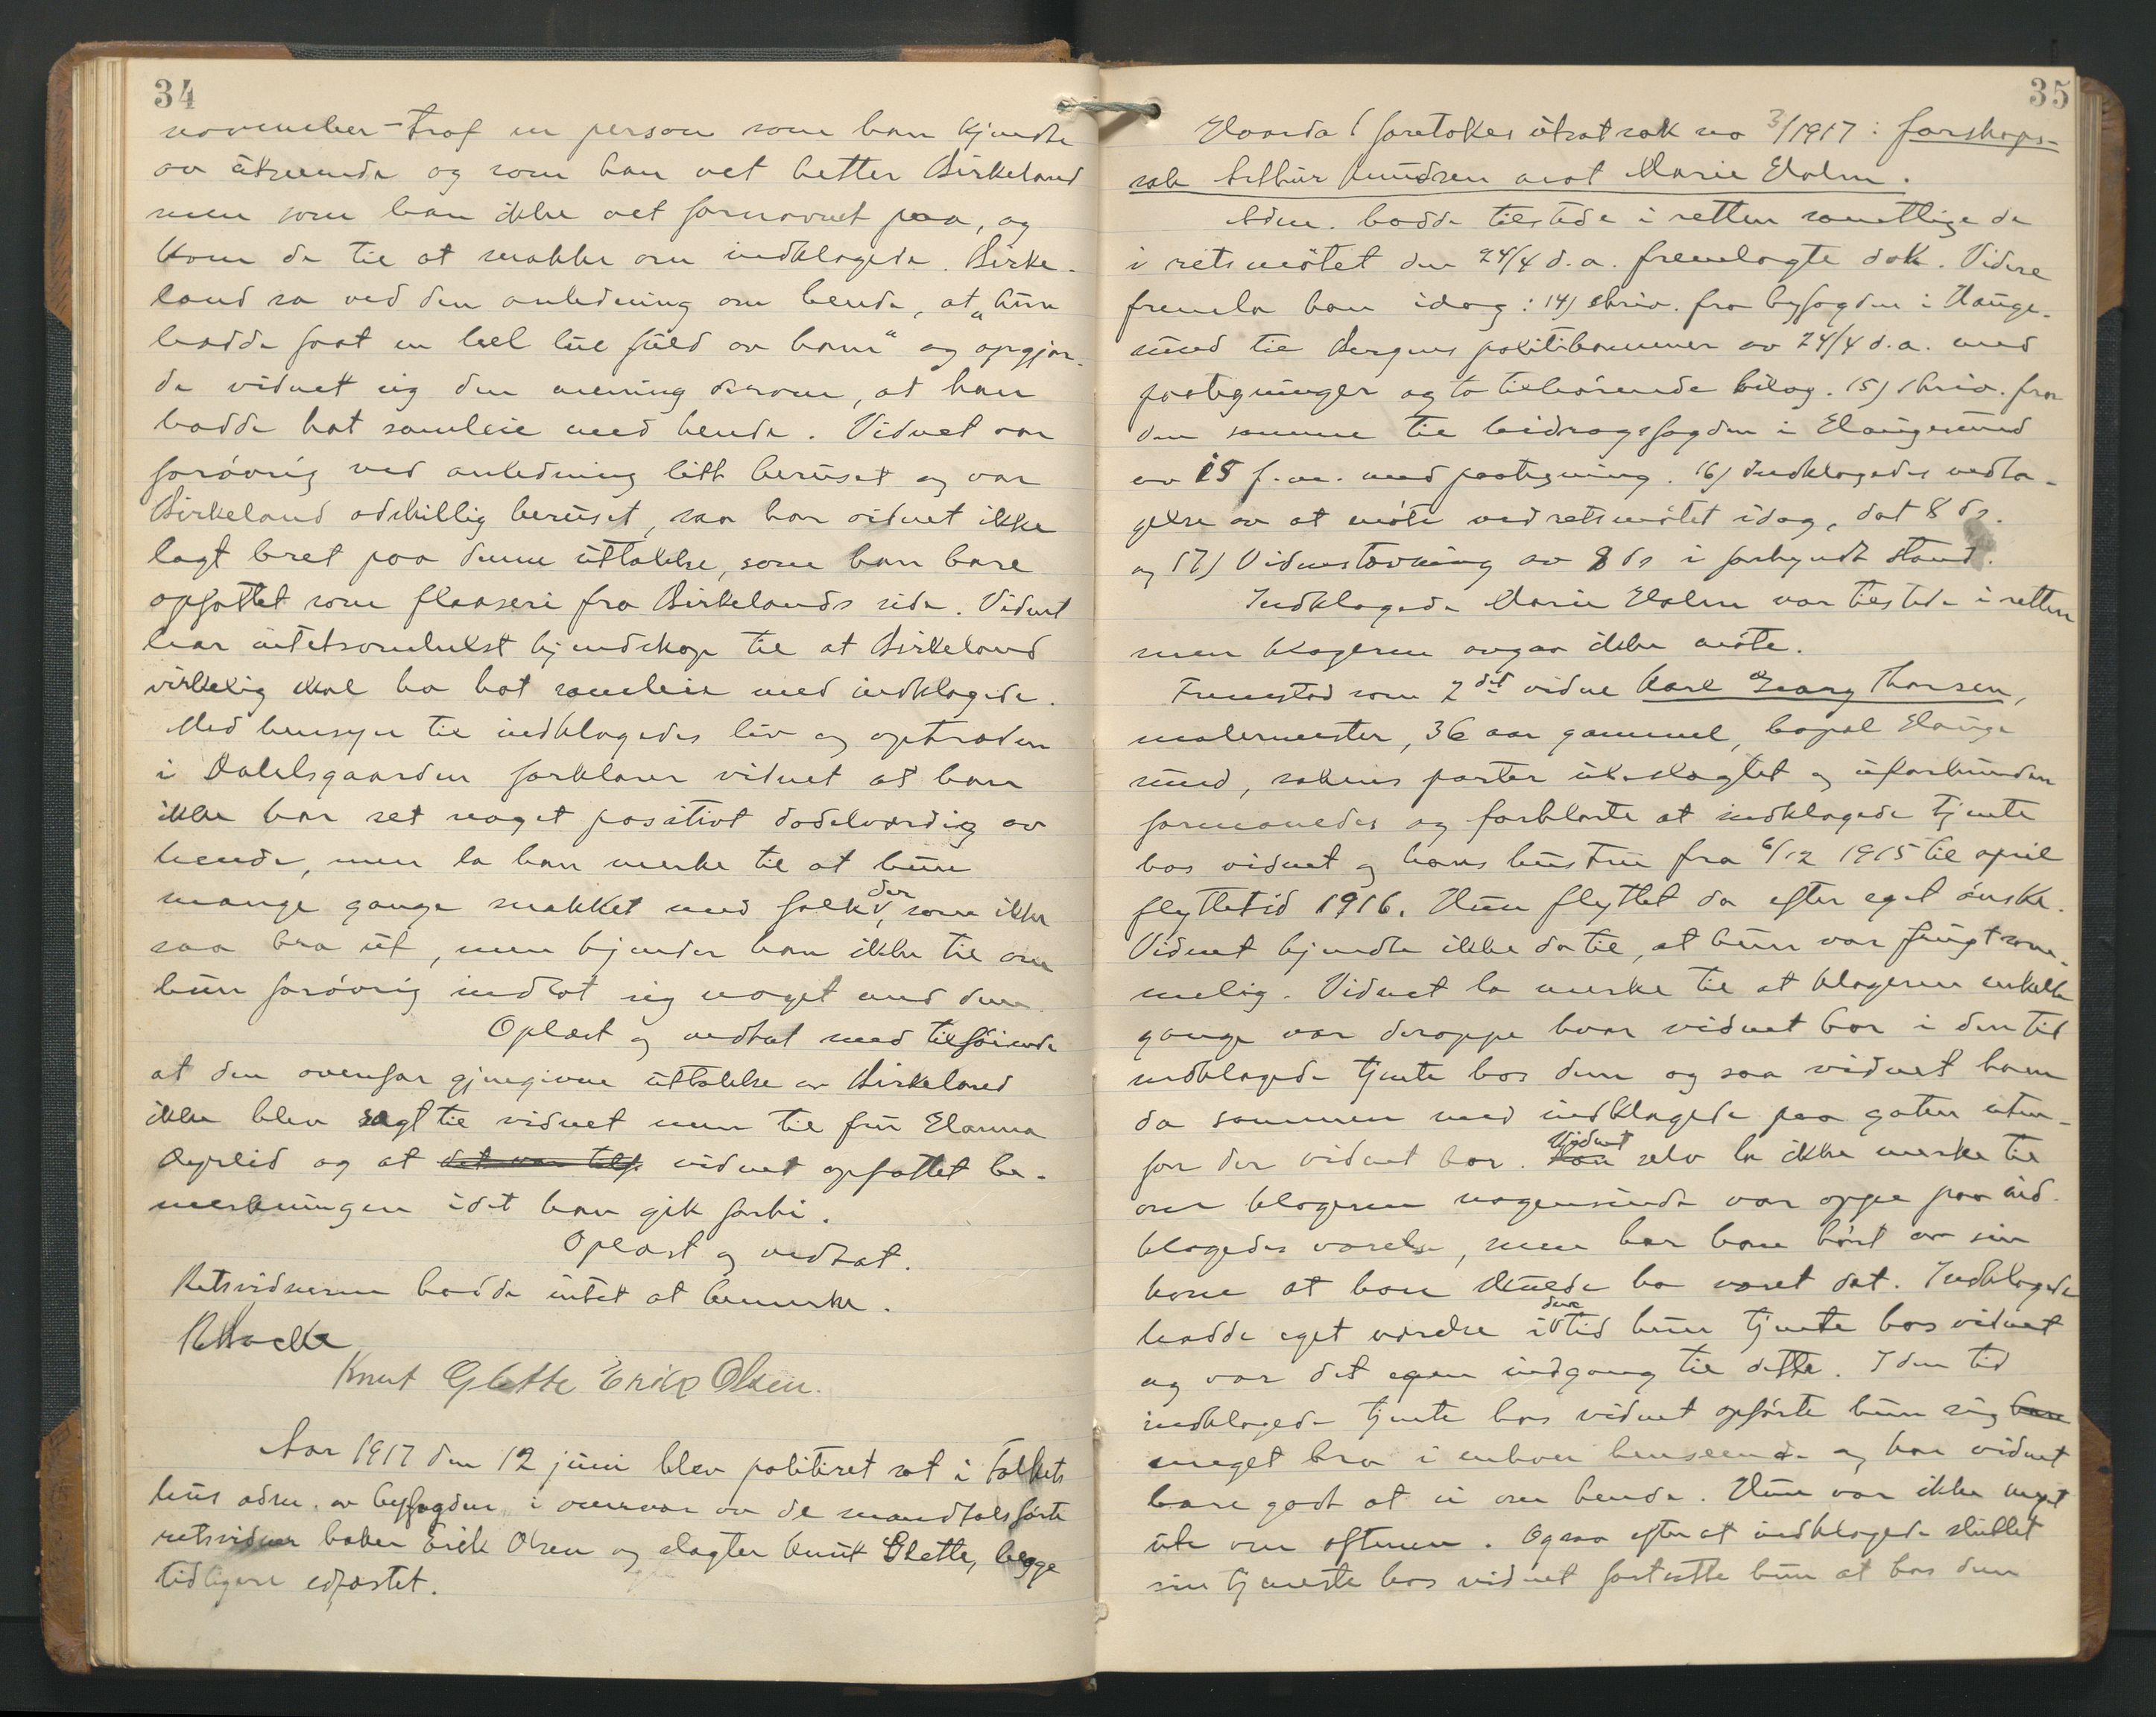 34
november - traf en person som han kjendte
av utseende og som han vet hetter Birkeland
men som han ikke vet fornavnet paa, og
kom de til at snakke om indklagede. Birke-
land sa ved den anledning om hende, at „hun
hadde faat en hel lue fuld av ham“ og opgjor-
de vidnet sig den mening derom, at han
hadde hat samleie med hende. Vidnet var
forøvrig ved anledning litt beruset og var
Birkeland adskillig beruset, saa har vidnet ikke
lagt bret paa denne uttalelse, som han bare
opfattet som flaaseri fra Birkelands side. Vidnet
har intetsomhelst kjendskap til at Birkeland
virkelig skal ha hat samleie med indklagede.
Med hensyn til indklagedes liv og optræden
i Dalelsgaarden forklarer vidnet at han
ikke har set noget positivt dadelværdig av
hende, men la han merke til at hun
mange gange snakket med folk, der som ikke
saa bra ut, men kjender han ikke til om
hun forøvrig indlot sig noget med dem.
Oplæst og vedtat med tilføiende
at den ovenfor gjengivne uttalelse av Birkeland
ikke blev sagt til vidnet men til fru Hanna
og at det var vidnet opfattet be-
merkningen idet han gik forbi.
Oplæst og vedtat.
Retsvidnerne hadde intet at bemerke.
Knut Glette Erik Olsen.
Aar 1917 den 12 juni blev politiret sat i Folkets
hus adm. av byfogden i overvær av de mandtalsførte
retsvidner baker Erik Olsen og slagter Knut Glette, begge
tidligere edfæstet.
35
Hvorda foretokes utsat sak no 3/1917: farskaps-
sak Arthur Knudsen mot Marie Holm.
Adm. hadde tilstede i retten samtlige de
i retsmøtet den 24/4 d.a. fremlagte dok. Videre
fremla han idag: 14) skriv. fra byfogden i Hauge-
sund til Bergens politikammer av 24/4 d.a. med
paategninger og to tilhørende bilag. 15) skriv. fra
den samme til bidragsfogden i Haugesund
av 15 f.m. med paategning. 16) Indklagedes vedta-
gelse av at møte ved retsmøtet idag, dat 8 ds.
og 17) Vidnestævning av 8 ds i forkyndt stand.
Indklagede Marie Holm var tilstede i retten
men klageren ikke møte.
Fremstod som 2det vidne Karl Georg Thorsen,
malermester, 36 aar gammel, bopæl Hauge
sund, sakens parter ubeslægtet og uforbunden
formanedes og forklarte at indklagede tjente
hos vidnet og hans hustru fra 6/12 1915 til april
flyttetid 1916. Hun flyttet da efter eget ønske.
Vidnet kjendte ikke da til, at hun var frugtsom-
melig. Vidnet la merke til at klageren enkelte
gange var deroppe hvor vidnet bor i den tid
indklagede tjente hos dem og saa vidnet ham
da sammen med indklagede paa gaten uten-
for der vidnet bor. Han Vidnet selv la ikke merke til
om klageren nogensinde var oppe paa ind-
klagedes værelse, men har han hørt av sin
kone at han skulde ha været dat. Indklagede
hadde eget værelse i den tid hun tjente hos vidnet
og var det egen indgang til dette. I den tid
indklagede tjente hos vidnet opførte hun sig bare
meget bra i enhver henseende og har vidnet
bare godt at si om hende. Hun var ikke meget
ute om aftenen. Ogsaa efter at indklagede sluttet
sin tjeneste hos vidnet fortsatte hun at bo hos dem